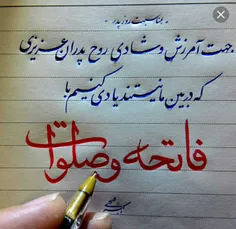 بمناسبت روز پدر
جهت آمرزش و شادی روح پدران عزیزی
که در بین ما نیستند یادی کنیم با
فاتحه و صلوات